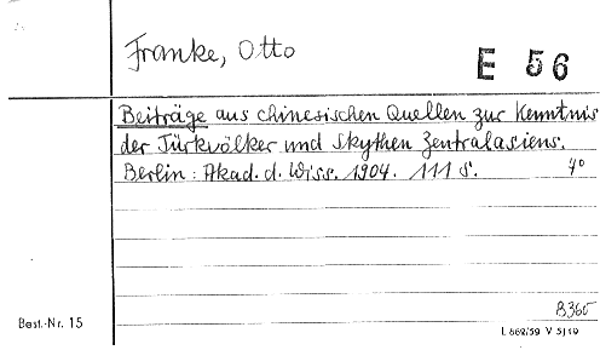 Franke, Otto
E 56
Beiträge aus chinesischen Quellen zur Kenntnis
der Türkvölker und Skythen Zentralasiens.
Berlin: Akad. d. Wiss. 1904. 111 S. 4°
B 365
Best.-Nr. 15
L 868/59 V 5/19